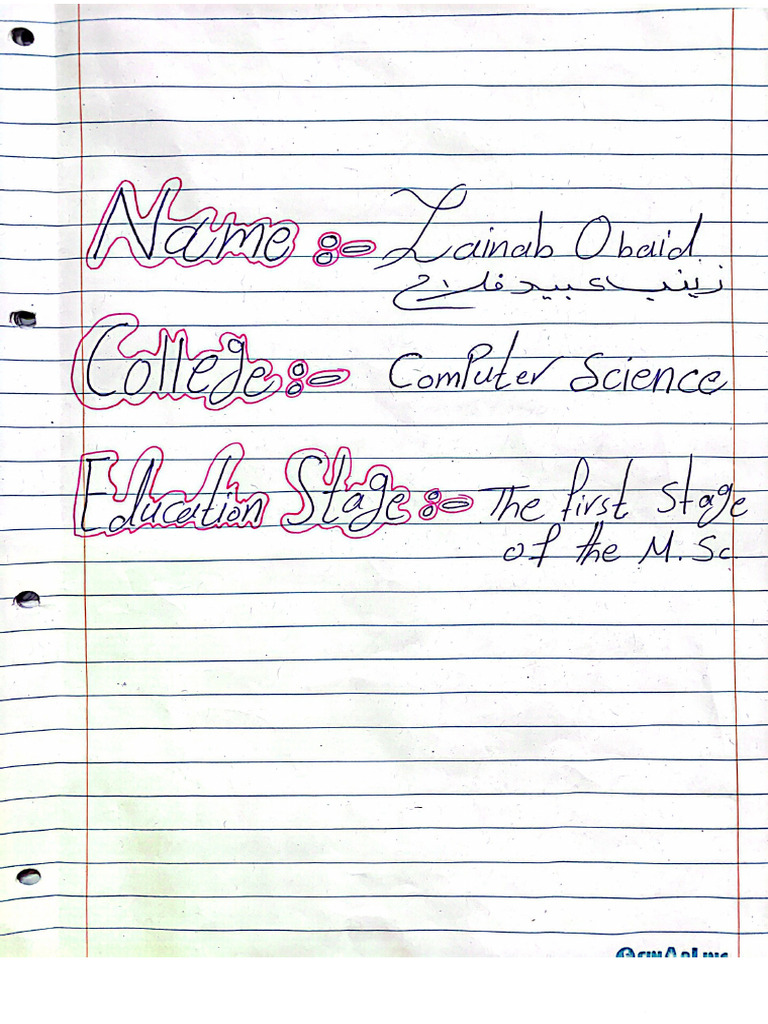 Name :- Zainab Obaid
زينب عبيد فلاح
College :- Computer Science
Education Stage :- The first Stage
of the M.Sc